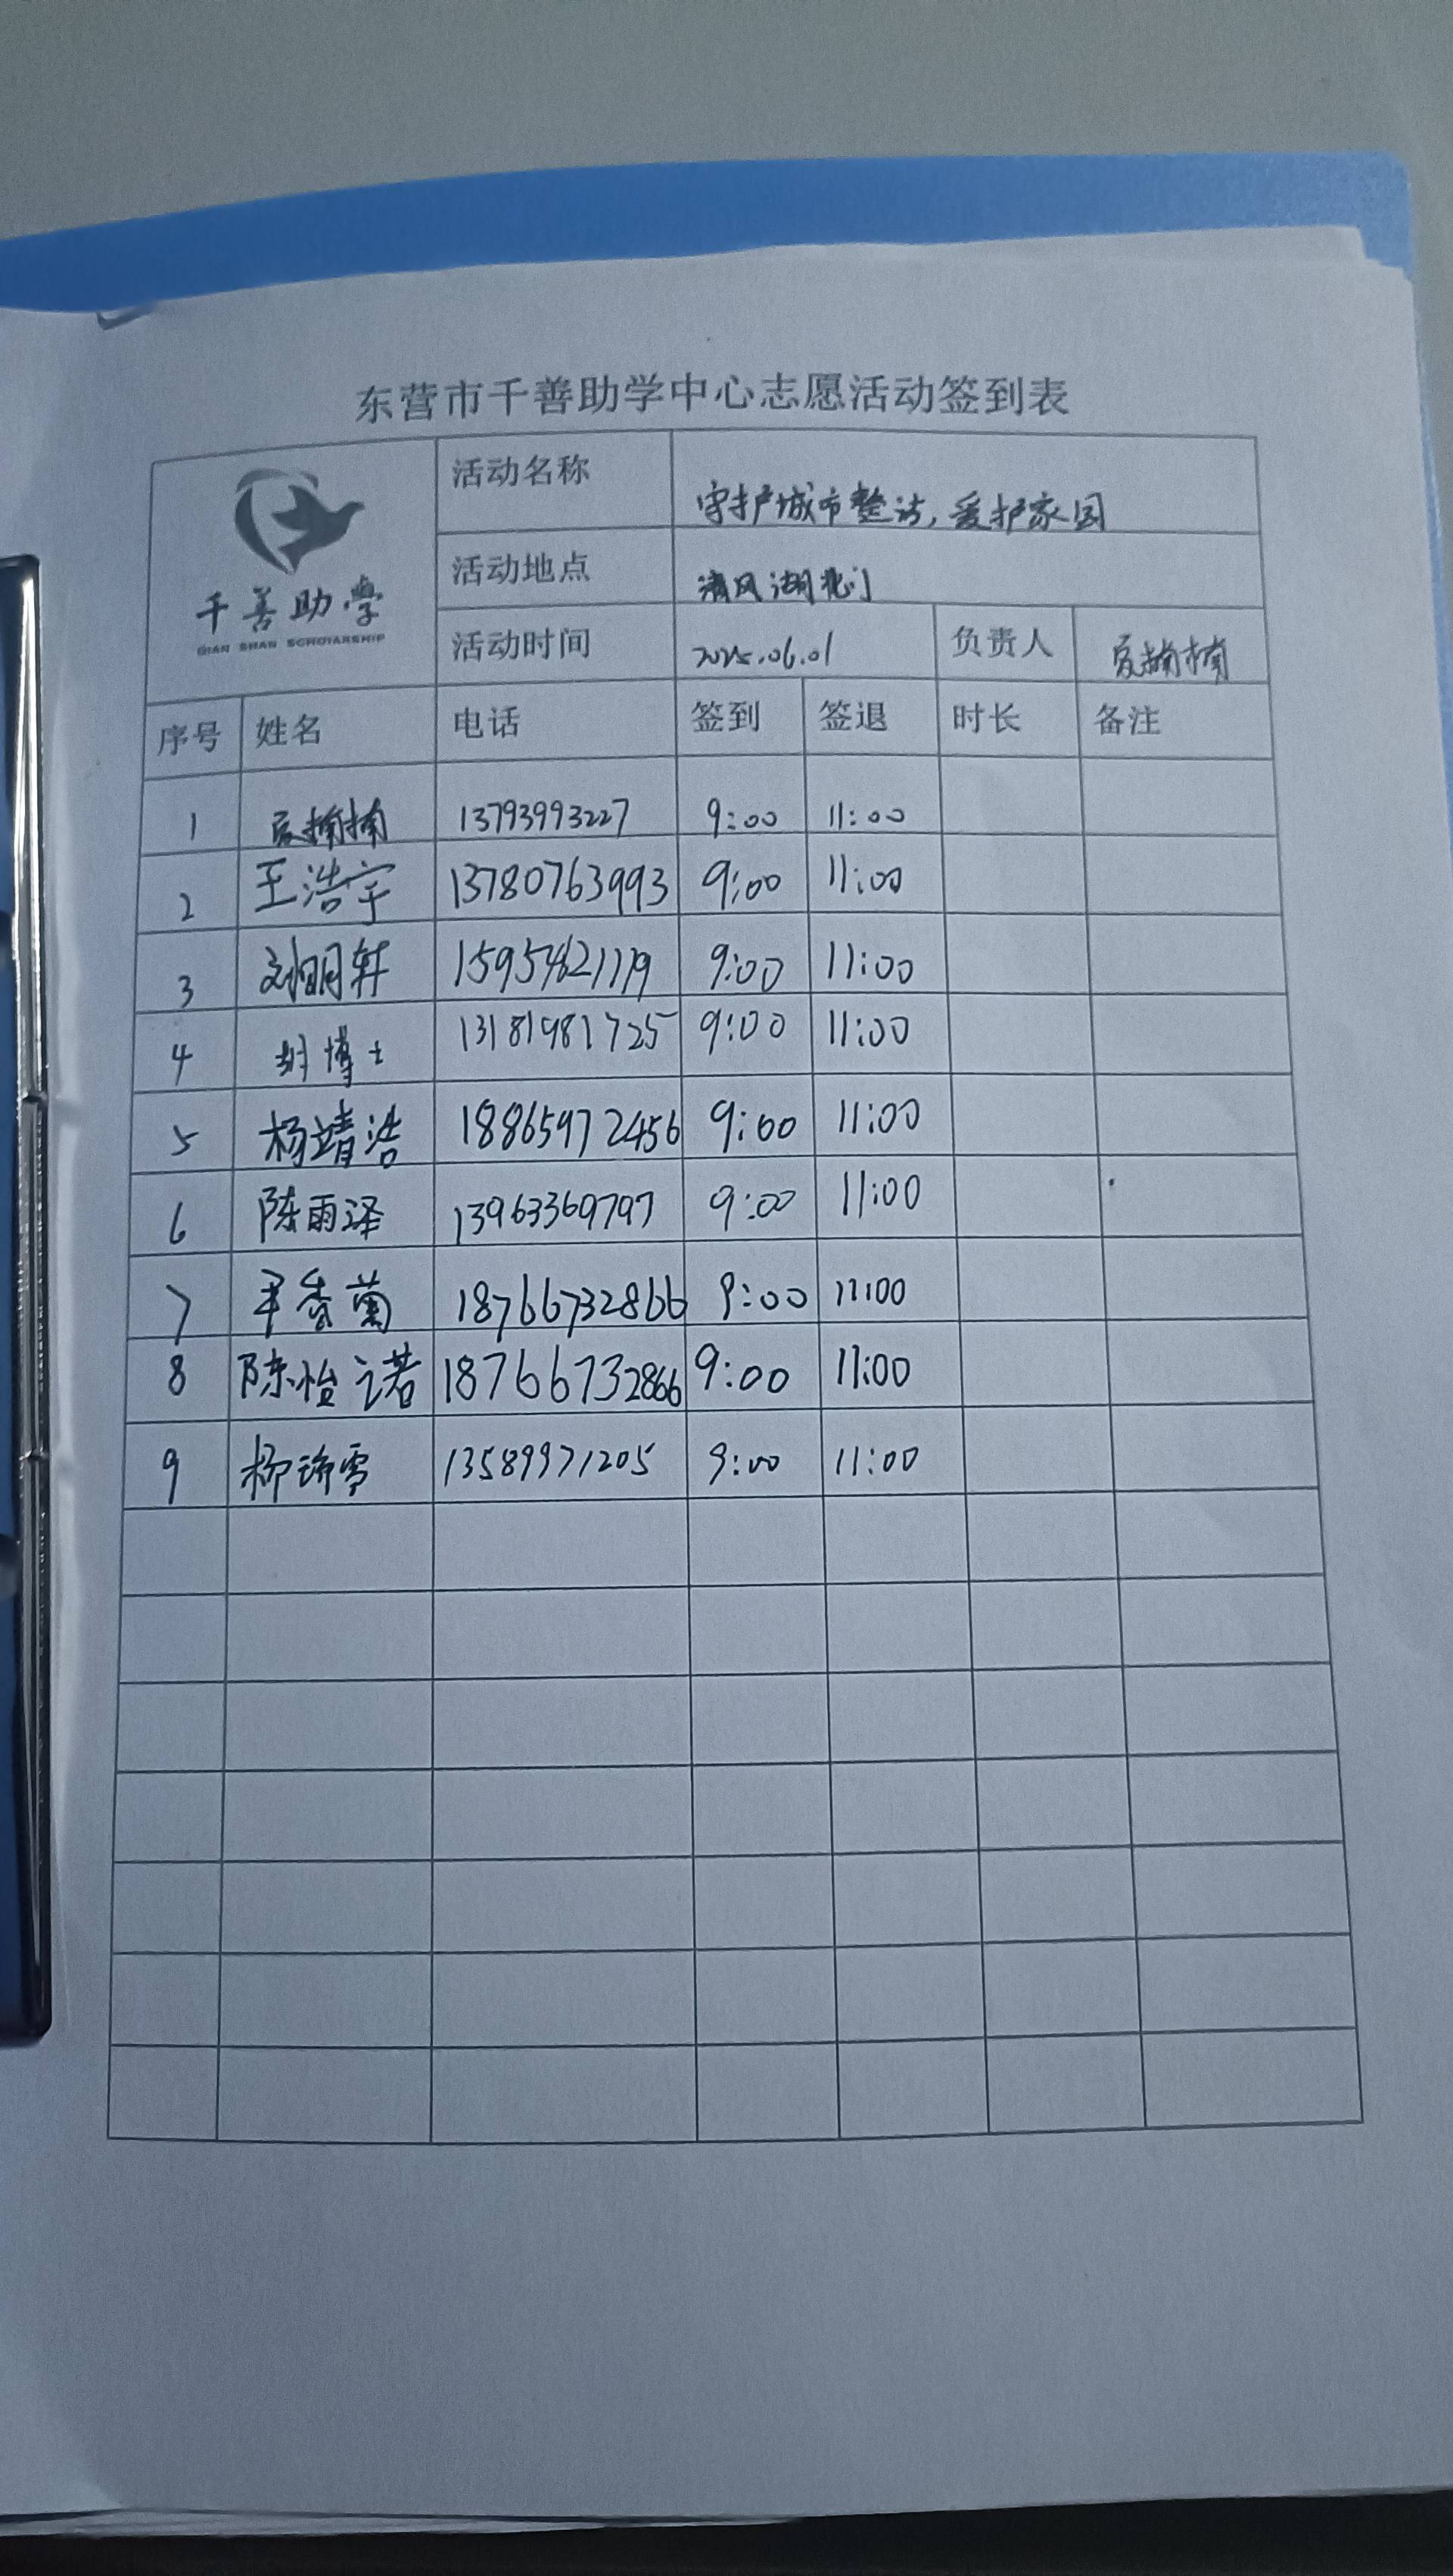 东营市千善助学中心志愿活动签到表
千善助學
QIAN SHAN SCHOLARSHIP
活动名称 守护城市整洁,爱护家园
活动地点 清风湖北门
活动时间 2025.06.01 负责人
序号 姓名 电话 签到 签退 时长 备注
1 13793993227 9:00 11:00
2 王浩宇 13780763993 9:00 11:00
3 刘明轩 15954621119 9:00 11:00
4 胡博士 13181981725 9:00 11:00
5 杨靖浩 18865972456 9:00 11:00
6 陈雨泽 13963369797 9:00 11:00
7 尹香菊 18766732866 9:00 11:00
8 陈怡诺 18766732866 9:00 11:00
9 柳 雪 13589971205 9:00 11:00